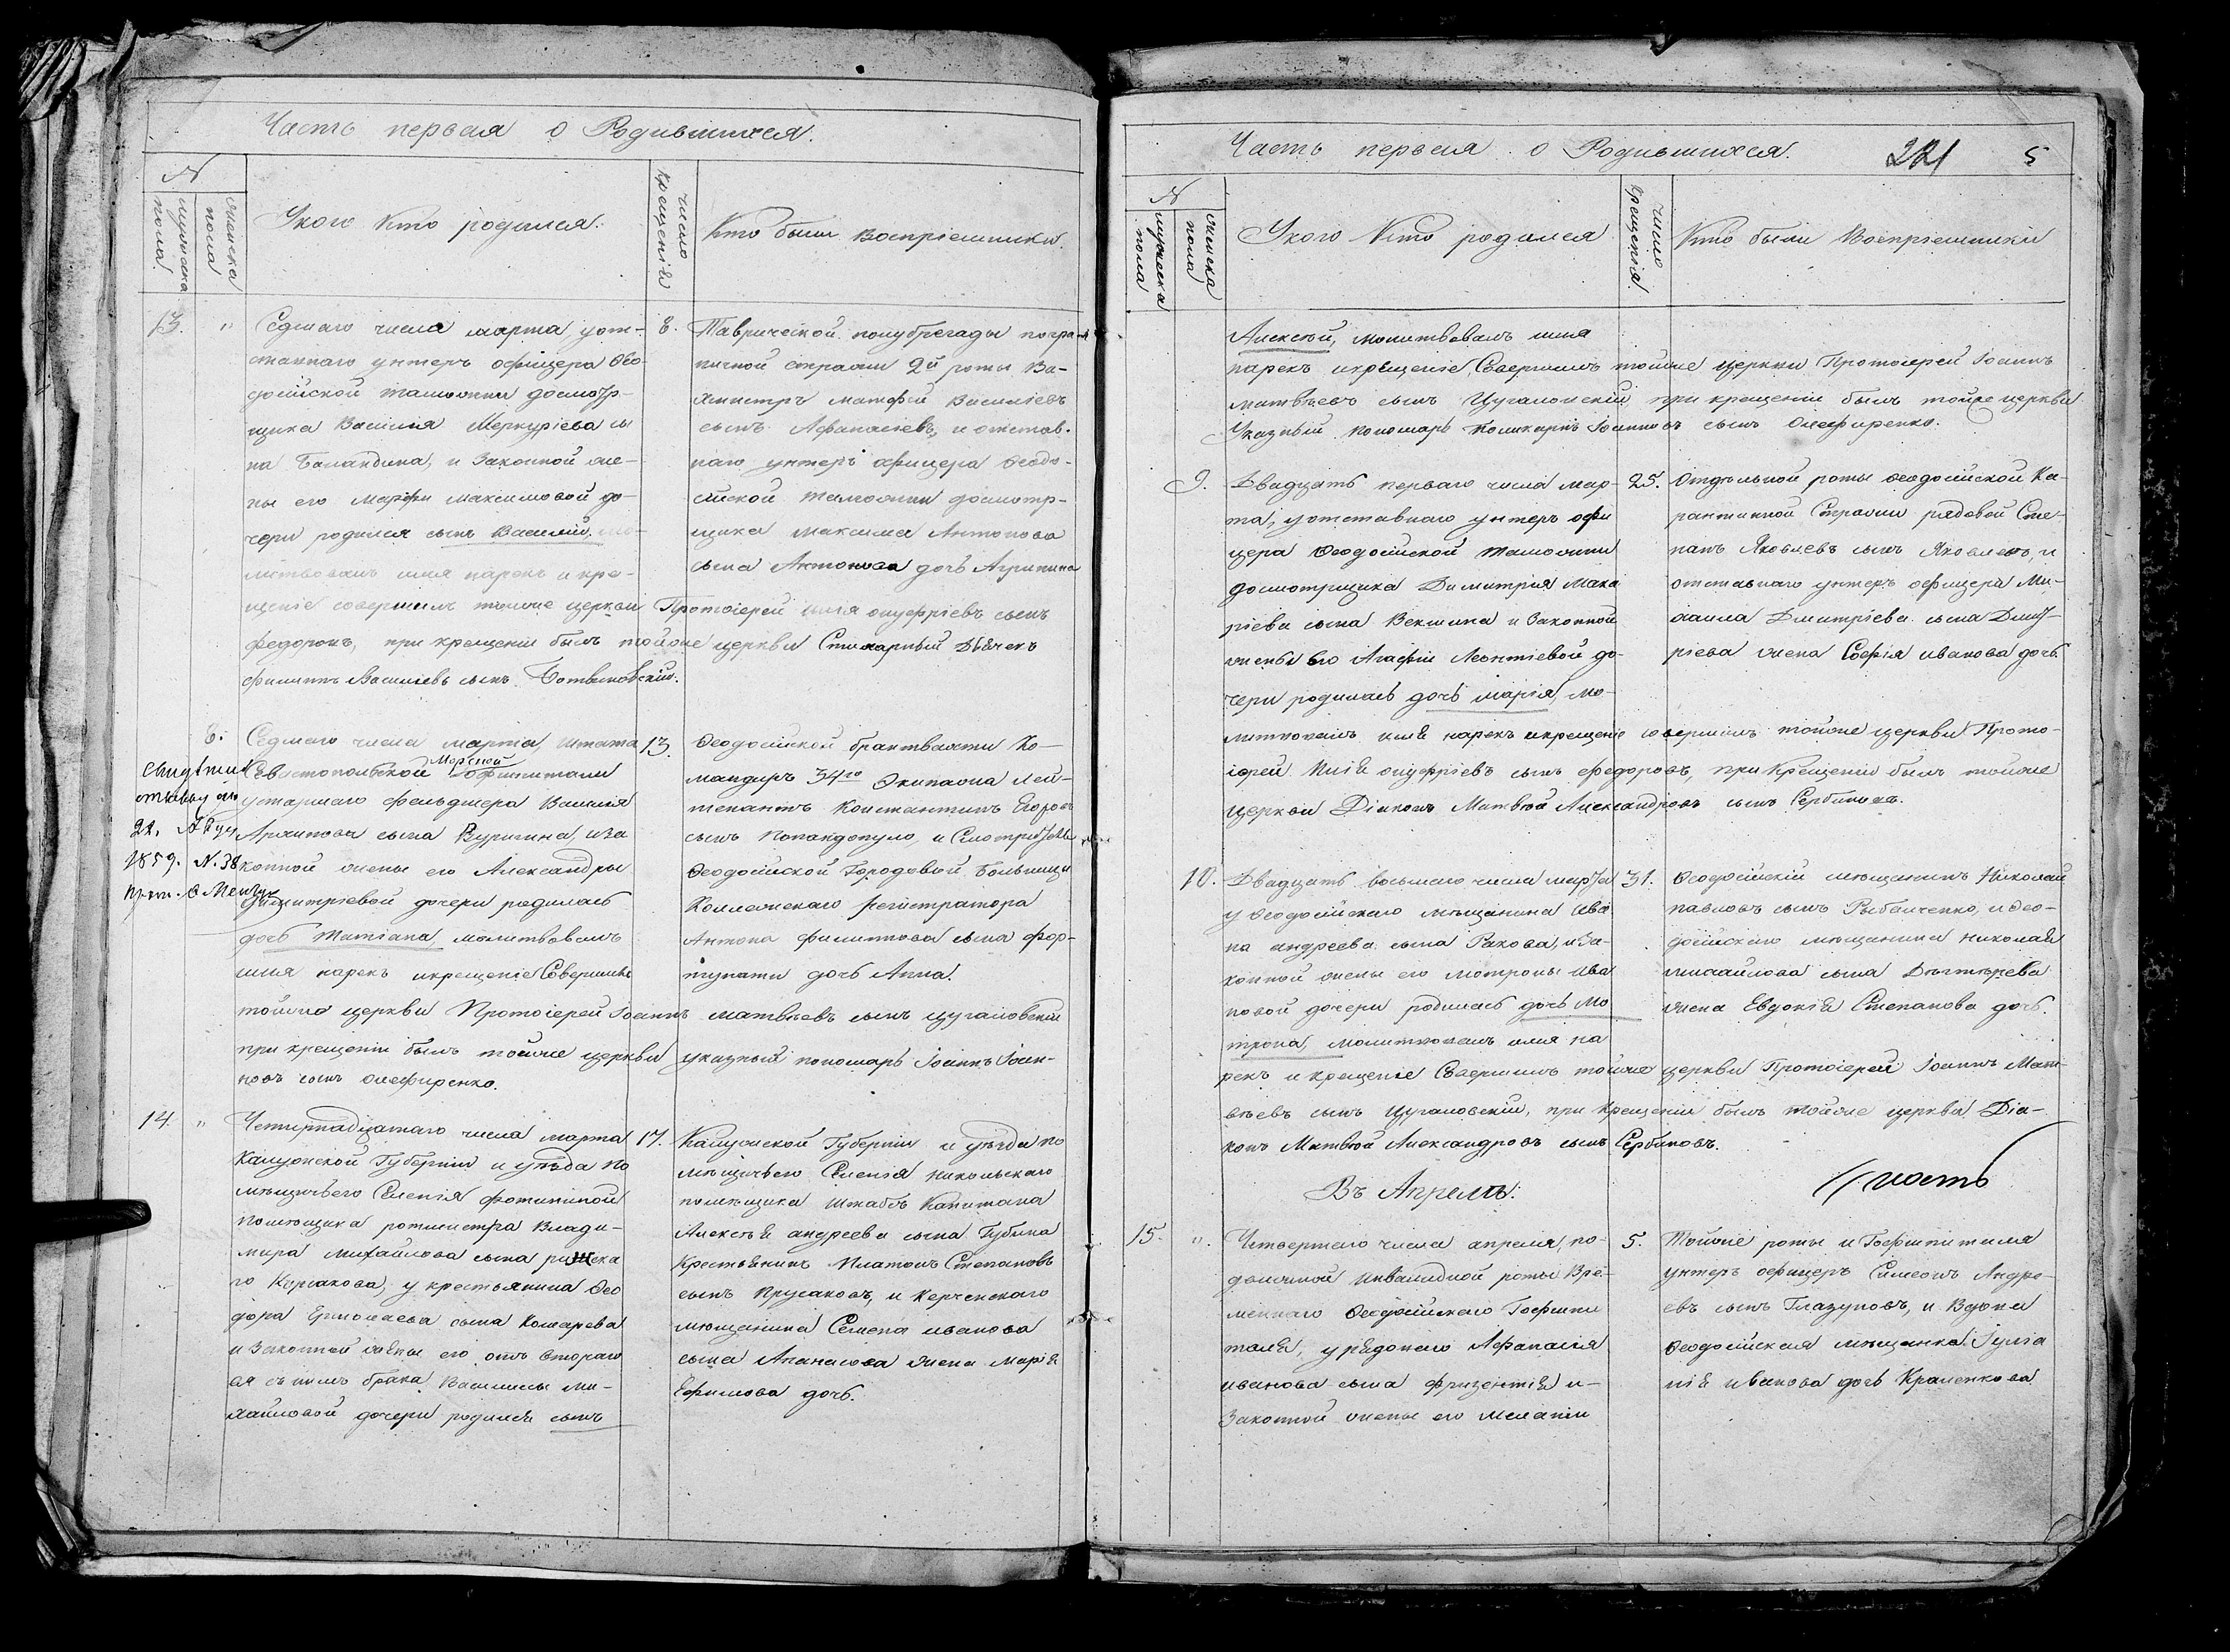 Часть первая о Родившихся.
№
мужеска пола
женска пола
У кого кто родился.
число крещенія
Кто были воспріемники.
13. " Седмаго числа марта, у от-
ставнаго унтеръ офицера Ѳео-
досійской таможни досмотр-
щика Василія Меркуріева сы
на Баландина, и Законной же-
ны его Марфы Максимовой до-
чери родился сынъ Василій, мо-
литвовалъ имя нарекъ и кре-
щеніе совершилъ тойже церкви Протоіерей Илія онуфріевъ сынъ
федоровъ, при крещеніи былъ тойже церкви Стихарный Дьячекъ
филиппъ Василіевъ сынъ Ботвиновскій.
8. Таврической полубрегады погра-
ничной стражи 2й роты Ва-
хмистръ матфей Василіевъ
сынъ Афанасіевъ, и отстав-
наго унтеръ офицера Ѳеодо-
сійской таможни досмотр-
щика максима Антонова
сына Антонова дочь Агрипина
8. Седмаго числа марта, штата
Севастопольской Морской гофшпитали
устаршаго фельдшера Василія
Архипова сына Вуригина, иза
конной жены его Александры
Димитріевой дочери родилась
дочь Татіана, молитвовалъ
имя нарекъ икрещеніе Совершилъ
тойже церкви Протоіерей Іоаннъ матвѣевъ сынъ цугаловскій
при крещеніи былъ тойже церкви указный пономарь Іоаннъ Іоан-
новъ сынъ олефиренко.
22.
1859. N. 38
13. Ѳеодосійской брантвахты Ко-
мандиръ 34го Экипажа лей-
тенантъ Константинъ Егоровъ
сынъ Попандопуло, и Смотрителя
Ѳеодосійской Городовой Больницы
Коллежскаго регистратора
Антона филиппова сына фор-
тунати дочь Анна.
14. " Четырнадцатаго числа марта
Калужской Губерніи и уѣзда по
мѣщичьего Селенія фотининой
помѣщика ротмистра Влади-
мира михайлова сына
го Корсакова, у крестьянина Ѳео
дора Ермолаева сына Комарева
и Законной жены его отъ втораго
ея съ нимъ брака Василисы ми-
хайловой дочери родился сынъ
17. Калужской Губерніи и уѣзда по
мѣщичьего Селенія никольскаго
помѣщика штабъ Капитана
Алексѣя андреева сына Губина
Крестьянинъ Платонъ Степановъ
сынъ Прусаковъ, и Керченскаго
мѣщанина Семена иванова
сына Апанасова жена марія
Ефимова дочь.
Часть первая о Родившихся.
221 5
№
мужеска пола
женска пола
У кого Кто родился
число крещенія
Кто были Воспріемники
Алексѣй, молитвовалъ имя
нарекъ икрещеніе Совершилъ тойже церкви Протоіерей Іоаннъ
матвѣевъ сынъ Цугаловскій, при крещеніи былъ тойже церкви
Указный пономарь Поликарпъ Іоанновъ сынъ Олефиренко.
9. Двадцать перваго числа мар-
та, у отставнаго унтеръ офи
цера Ѳеодосійской таможни
досмотрщика Димитрія Мака
ріева сына Векшина и Законной
жены его Агафіи Леонтіевой до-
чери родилась дочь марія, мо-
литвовалъ имя нарекъ икрещеніе совершилъ тойже церкви Прото-
іерей Илія онуфріевъ сынъ федоровъ, при Крещеніи былъ тойже
церкви Діаконъ Матвѣй Александровъ сынъ Сербиновъ.
25. Отдѣльной роты Ѳеодосійской Ка-
рантинной Стражи рядовой Сте-
панъ Яковлевъ сынъ Яковлевъ, и
отставнаго унтеръ офицера Ми-
хаила Дмитріева сына Дмит-
ріева жена Софія иванова дочь
10. Двадцать восьмаго числа марта
у Ѳеодосійскаго мѣщанина Ива
на андреева сына Ракова, иза-
конной жены его мотроны ива
новой дочери родилась дочь Мо
трона, молитвовалъ имя на
рекъ и крещеніе Совершилъ тойже церкви Протоіерей Іоаннъ Мат-
вѣевъ сынъ цугаловскій, при крещеніи былъ тойже церкви Діа-
конъ Матвѣй Александровъ сынъ Сербиновъ.
31. Ѳеодосійскій мѣщанинъ Николай
павловъ сынъ Рыбалченко, и Ѳео-
досійскаго мѣщанина николая
михайлова сына Дегтярева
жена Евдокія Степанова дочь.
Въ Апрелѣ:
15. " Четвертаго числа апреля, по-
движной инвалидной роты Вре-
меннаго Ѳеодосійскаго Гофшпи
таля, урядоваго Афанасія
иванова сына и-
Законной жены его меланіи
5. Тойже роты и Гофшпиталя
унтеръ офицеръ Симеонъ Андре-
евъ сынъ Глазуновъ, и Вдова
Ѳеодосійская мѣщанка Іулiа
нія иванова дочь Краненкова